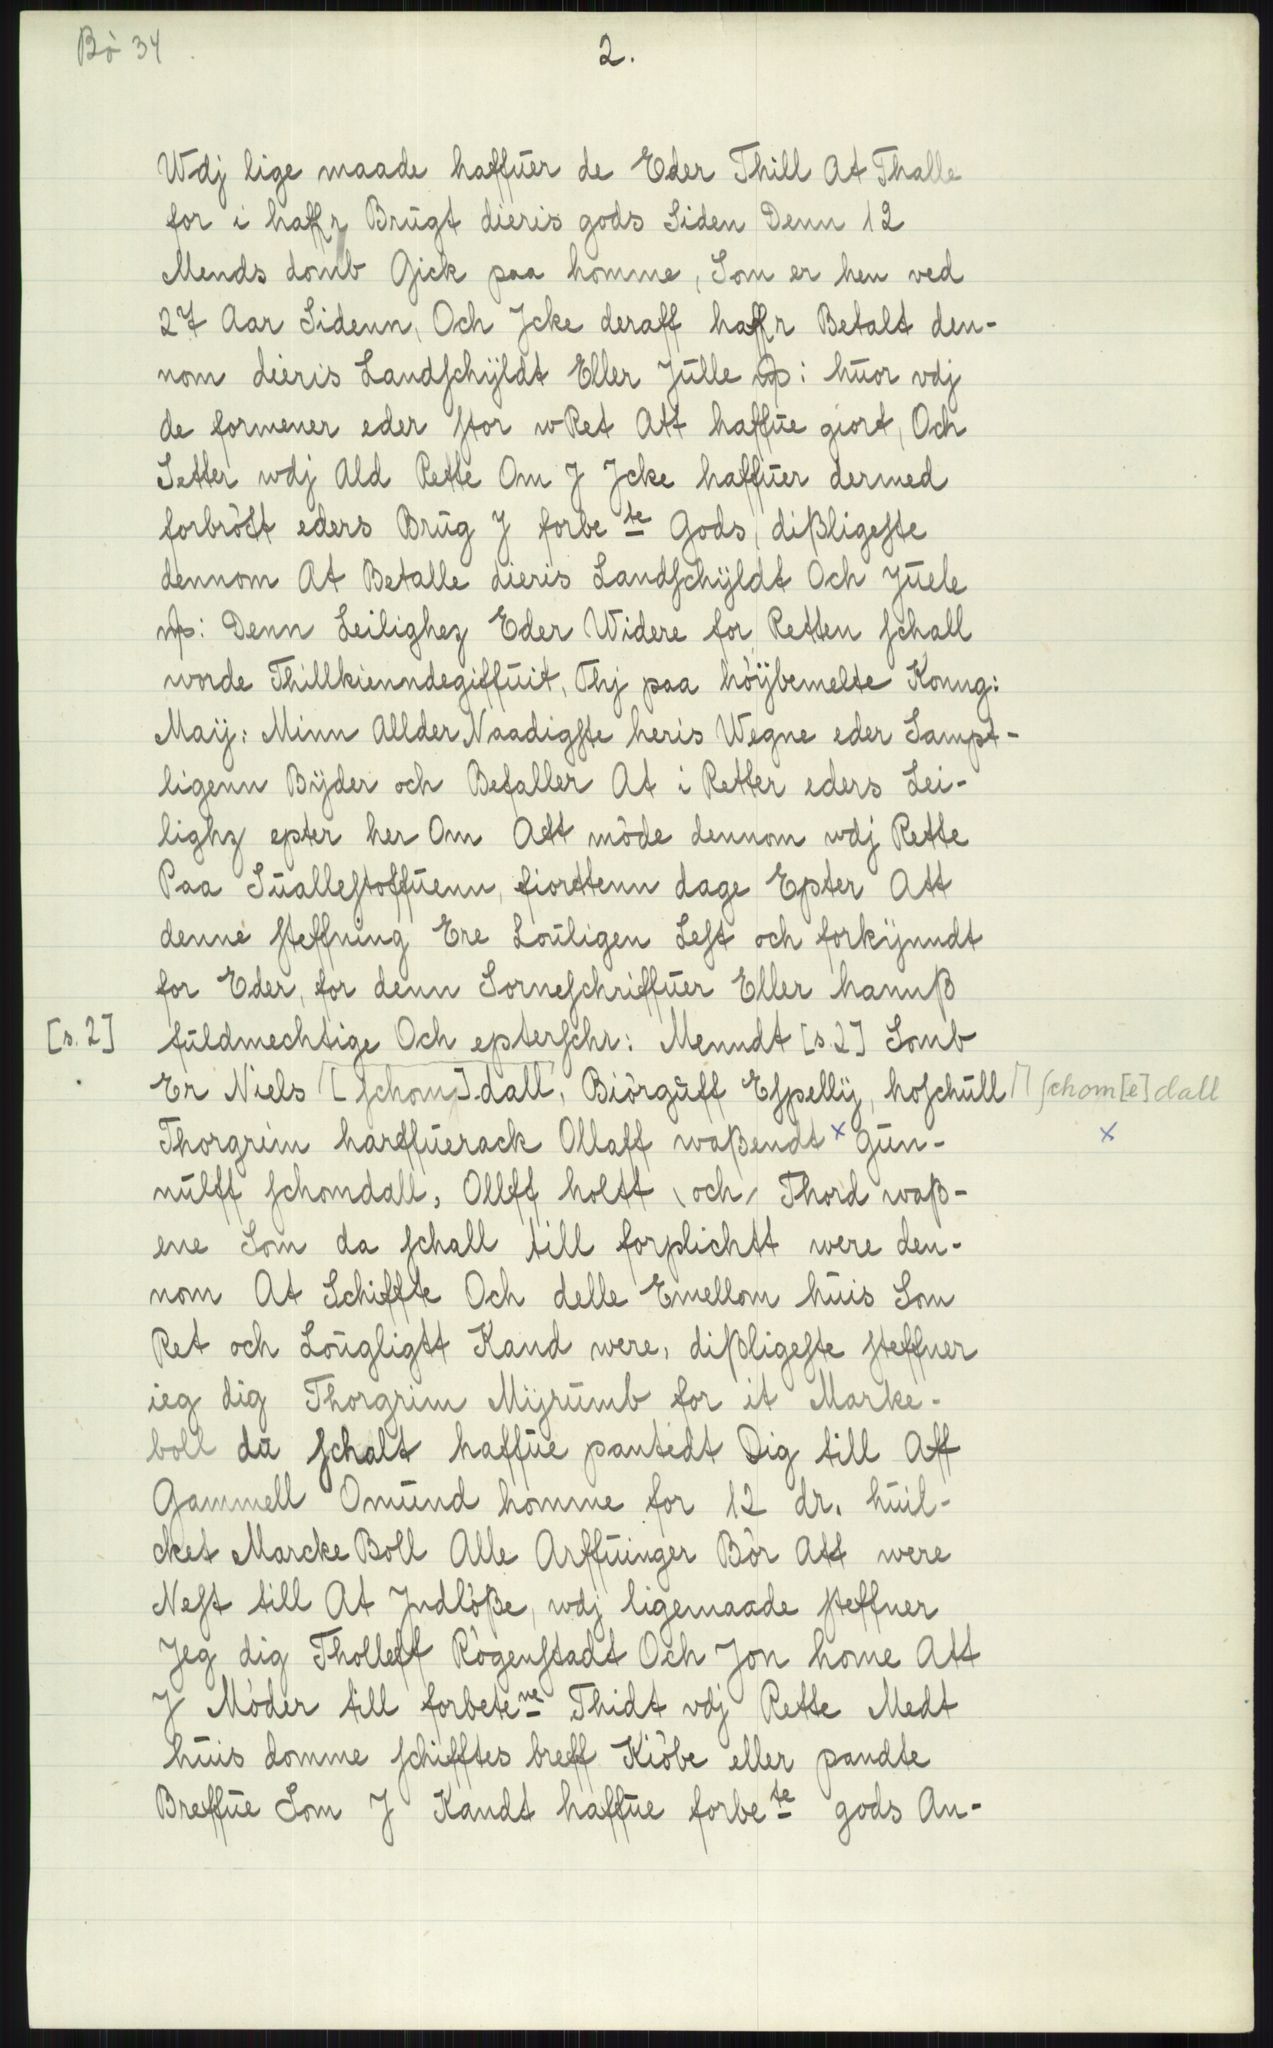 Bö 34
2.
Wdj lige maade haffuer de Eder Thill At Thalle
for i haffr Brugt dieris gods Siden Denn 12
Mends domb Gick paa homme, Som er hen ved
27 Aar Sidenn, Och Jcke deraff haffr Betalt den-
nom dieris Landschÿldt Eller Julle : huor vdj
de formener eder stor wRet Att haffue giort, Och
Setter wdj Ald Rette Om J Jcke haffuer dermed
forbröst eders Brug J forbete Gods, dißligeste
dennom At Betalle dieris Landschÿldt Och Juele
: Denn Leilighez Eder Widere for Retten schall
worde Thillkienndegiffuit, Thj paa höÿbemelte Konng:
Maÿ: Minn AllderNaadigste heris Wegne eder Sampt-
ligenn Bÿder och Befaller At i Retter eders Lei-
lighz epter her Om Att möde dennom wdj Rette
Paa Suallestoffuenn, fiorttenn dage Epter Att
denne steffning Ere Louligen Lest och forkÿnndt
for Eder, for denn Sorneschriffuer Eller hannß
[s. 2] fuldmechtige Och epterschr: Menndt [s.2] Somb
Er Niels [schom].dall, Biörguff Espellÿ, hoschull schom[e]dall
Thorgrim hardfuerack Ollaff waßendt x Gun- x
nulff schomdall, Ollff holtt, och, Thord waß-
ene Som da schall till forplichtt were den-
nom At Schiffte Och delle Emellom huis Som
Ret och Lougligtt Kand were, dißligeste steffner
ieg dig Thorgrim Mÿrumb for it Marke-
boll du schalt haffue pantedt Dig till Aff
Gammell Omund homme for 12 dr. huil-
cket Marcke Boll Alle Arffuinger Bör Att were
Nest till At Jndlöße, wdj ligemaade steffner
Jeg dig Tholleff Rögenstadt Och Jon home Att
J Möder till forbetene Thidt vdj Rette Medt
huis domme schifftes breff Kiöbe eller pandte
Breffue Som J Kandt haffue forbete gods An-